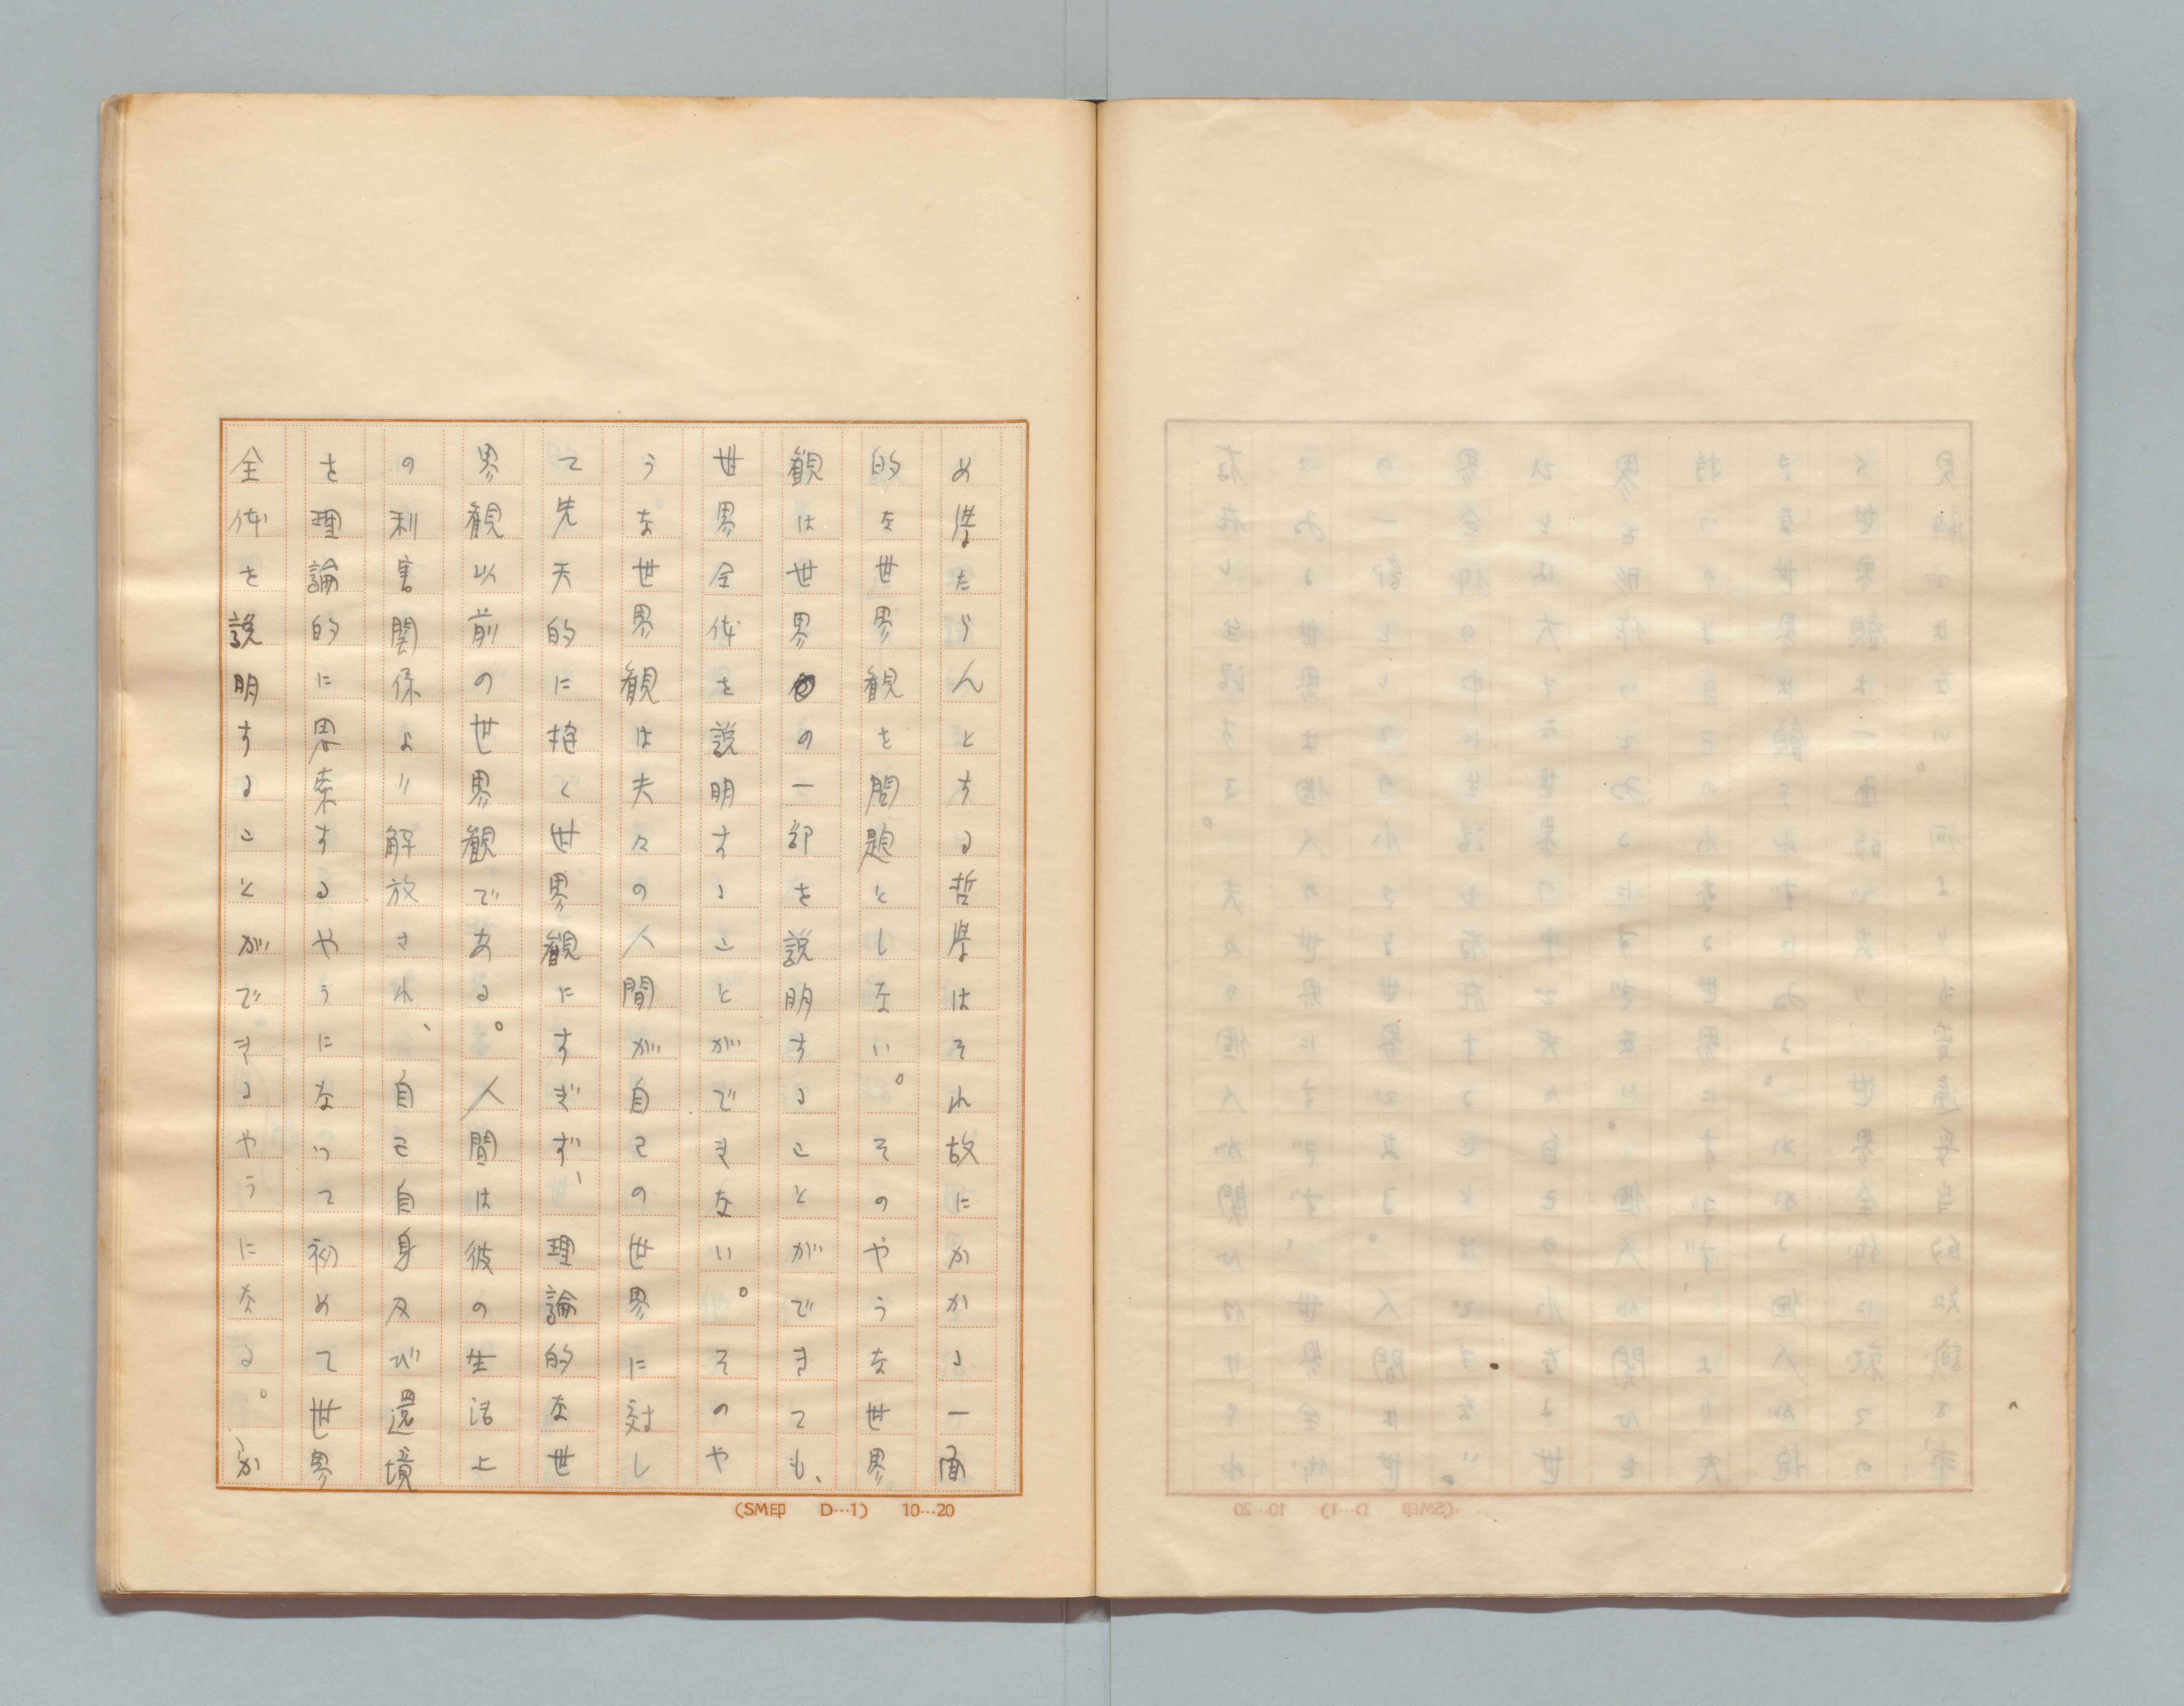 め学たらんとする哲学はそれ故にかかる一面
的な世界観を問題としない。そのやうな世界
観は世界の一部を説明することができても、
世界全体を説明することができない。そのや
うな世界観は夫々の人間が自己の世界に対し
て先天的に抱く世界観にすぎず、理論的な世
界観以前の世界観である。人間は彼の生活上
の利害関係より解放され、自己自身及び還境
を理論的に思索するやうになって初めて世界
全体を説明することができるやうになる。か
(SM印 D…1) 10…20